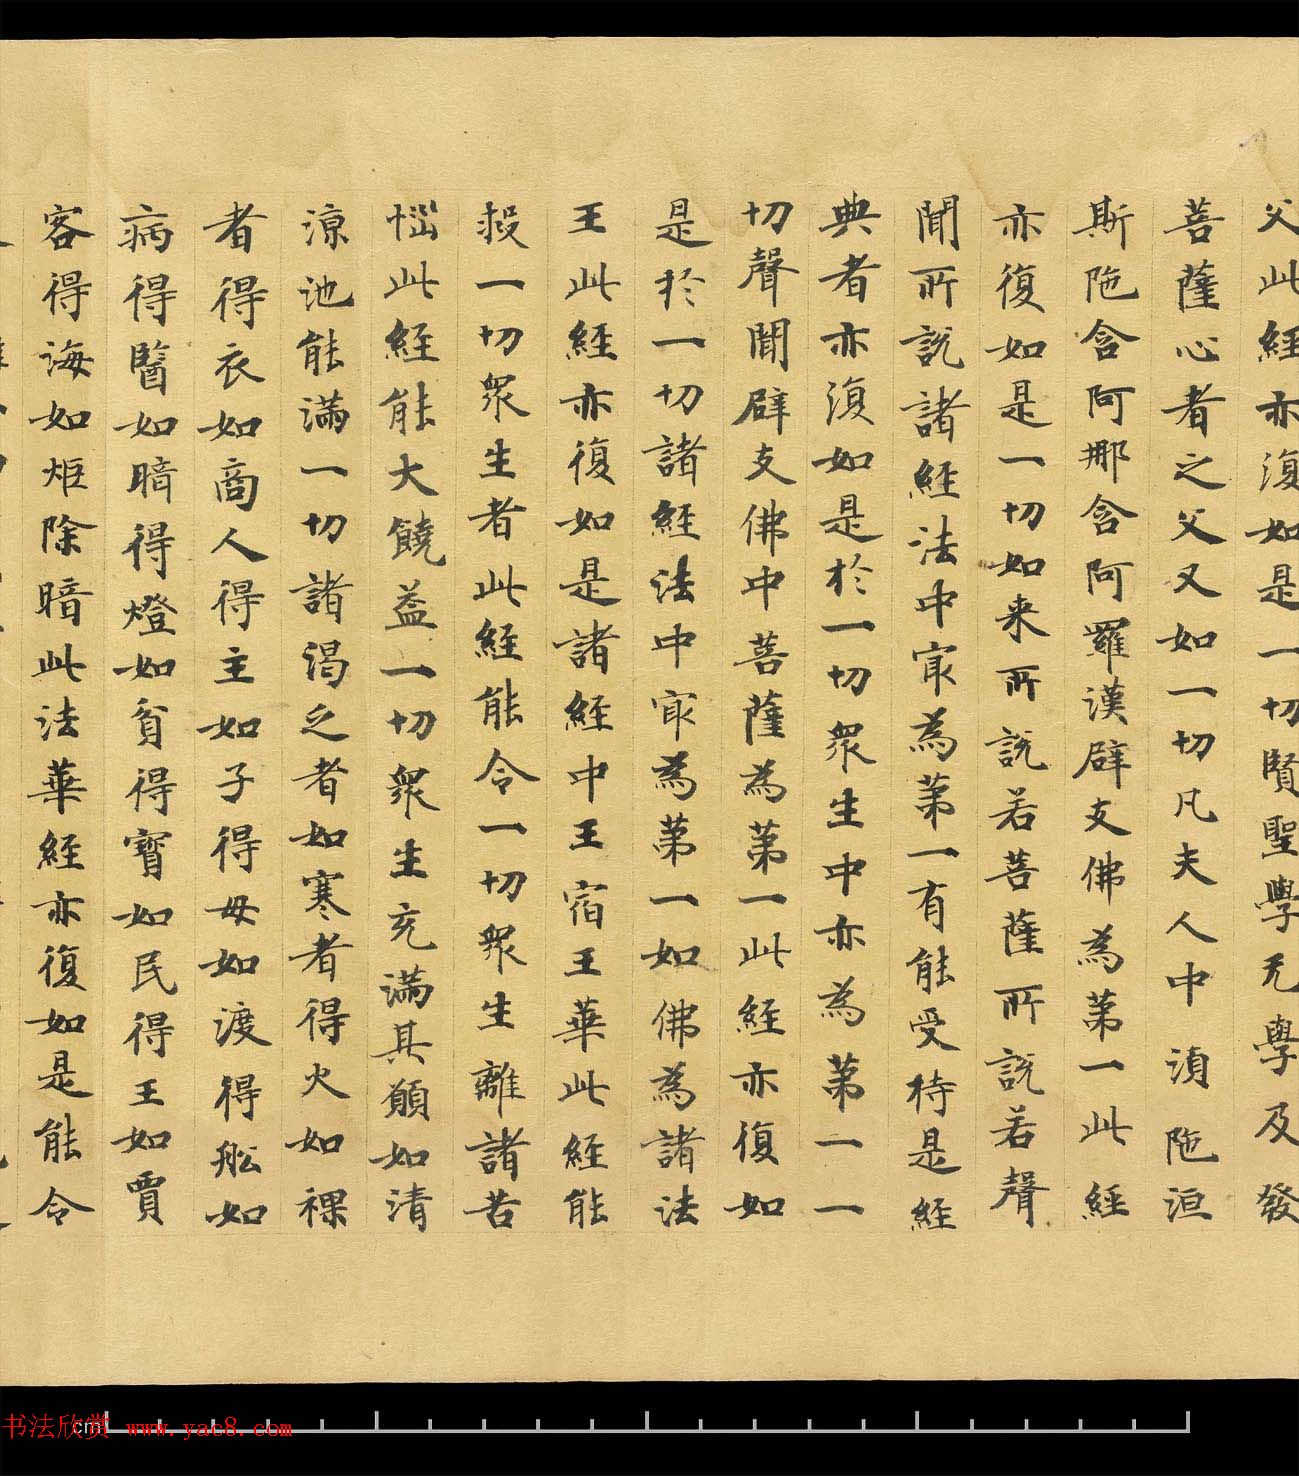 父此經亦復如是一切賢聖學无學及發
菩薩心者之父又如一切凡夫人中湏陁洹
斯陁含阿那含阿羅漢辟支佛為苐一此經
亦復如是一切如来所說若菩薩所說若聲
聞所說諸經法中冣為苐一有能受持是經
典者亦復如是於一切衆生中亦為苐一一
切聲聞辟支佛中菩薩為苐一此經亦復如
是於一切諸經法中冣為苐一如佛為諸法
王此經亦復如是諸經中王宿王華此經能
救一切衆生者此經能令一切衆生離諸苦
惱此經能大饒益一切衆生充滿其願如清
涼池能滿一切諸渴之者如寒者得火如裸
者得衣如商人得主如子得母如渡得舩如
病得醫如暗得燈如貧得寳如民得王如賈
客得海如炬除暗此法華經亦復如是能令
cm
书法欣赏 www.yac8.com